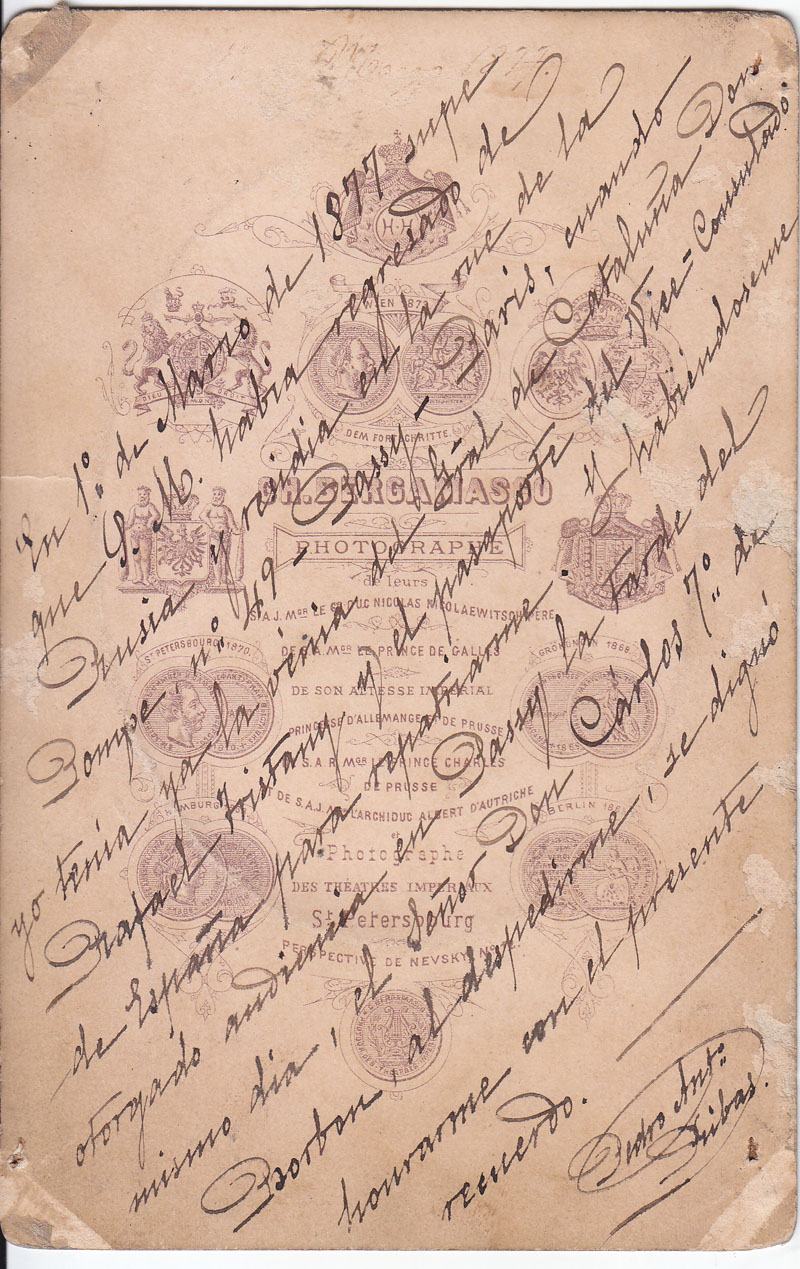 En 1º de Marzo de 1877 supe
que S. M. habia regresado de
Rusia y residia en la rue de la
Pompe, nº 49 - Passy - Paris, cuando
yo tenía ya la vénia del Gral de Cataluña Don
Rafael Tristany y el pasaporte del Vice-Consulado
de España para repatriarme. y habiéndoseme
otorgado audiencia en Passy la tarde del
mismo dia, el Señor Don Cárlos 7º de
Borbon, al despedirme, se dignó
honrarme con el presente
recuerdo.
Pedro Antº
Ribas.
H. H.
WIEN 1873
DIEU ET MON DROIT
DEM FORTSCHRITTE
CH. BERGAMASCO
PHOTOGRAPHE
de leurs
S.A.J. MGR LE GR. DUC NICOLAS NICOLAEWITSCH PÈRE
ST PETERSBOURG 1870.
DE S.A. MGR LE PRINCE DE GALLES
GRONINGEN 1869.
DE SON ALTESSE IMPÉRIAL
PRINCESSE D'ALLEMANGE ET DE PRUSSE
S.A.R. MGR LE PRINCE CHARLES
DE PRUSSE
ET DE S.A.J. MGR L'ARCHIDUC ALBERT D'AUTRICHE
HAMBURG
BERLIN 186
et
Photographe
DES THÉATRES IMPÉRIAUX
St. Petersbourg
PERSPECTIVE DE NEVSKY Nº